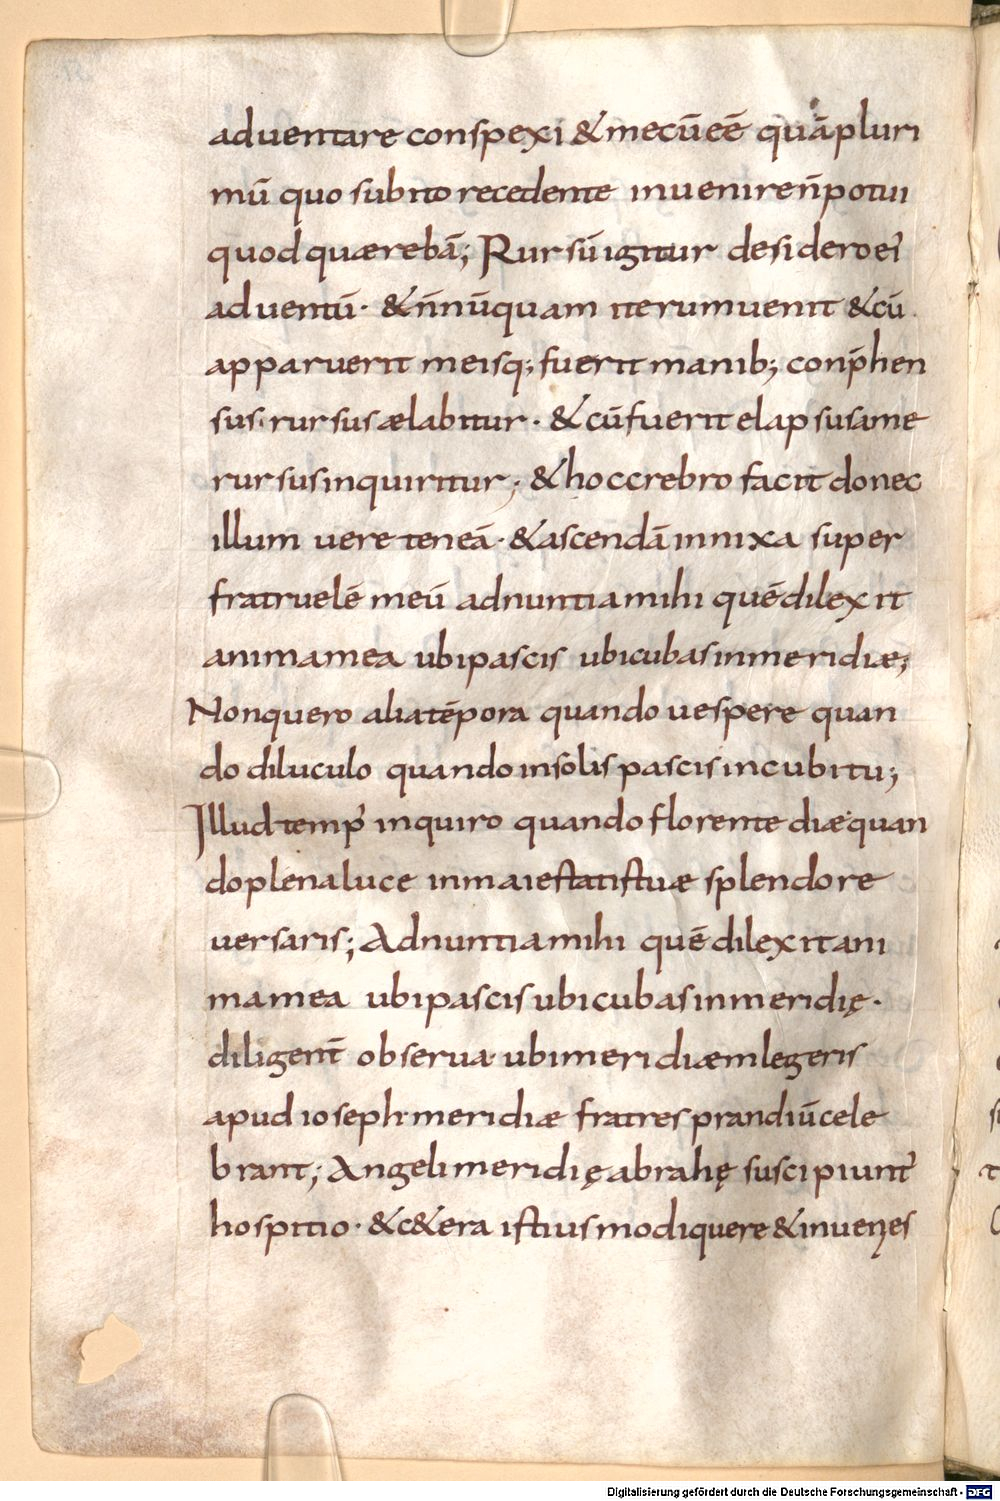 aduentare conspexi & mecū eē quāpluri
mū quo subito recedente inuenire n̄ potui
quod quærebā; Rursū igitur desidero ei᾽
aduentū· & n̄nūquam iterum uenit & cū
apparuerit meisq; fuerit manib; conp̄hen
sus· rursus ælabitur· & cū fuerit elapsus a me
rursus inquiritur; & hoc crebro facit donec
illum uere teneā· & ascendā innixa super
fratruelē meū adnuntia mihi quē dilexit
anima mea ubi pascis ubi cubas in meridiæ;
Non quero alia tēpora quando uespere quan
do diluculo quando in solis pascis incubitu;
Illud temp᾽ inquiro quando florente diæ quan
do plena luce in maiestatis tuæ splendore
uersaris; Adnuntia mihi quē dilexit ani
ma mea ubi pascis ubi cubas in meridię·
diligent̄ obserua· ubi meridiæm legeris
apud ioseph· meridiæ fratres prandiū cele
brant; Angeli meridię abrahę suscipiunt᾽
hospitio· & c&era istiusmodi quere & inuenies
Digitalisierung gefördert durch die Deutsche Forschungsgemeinschaft - DFG